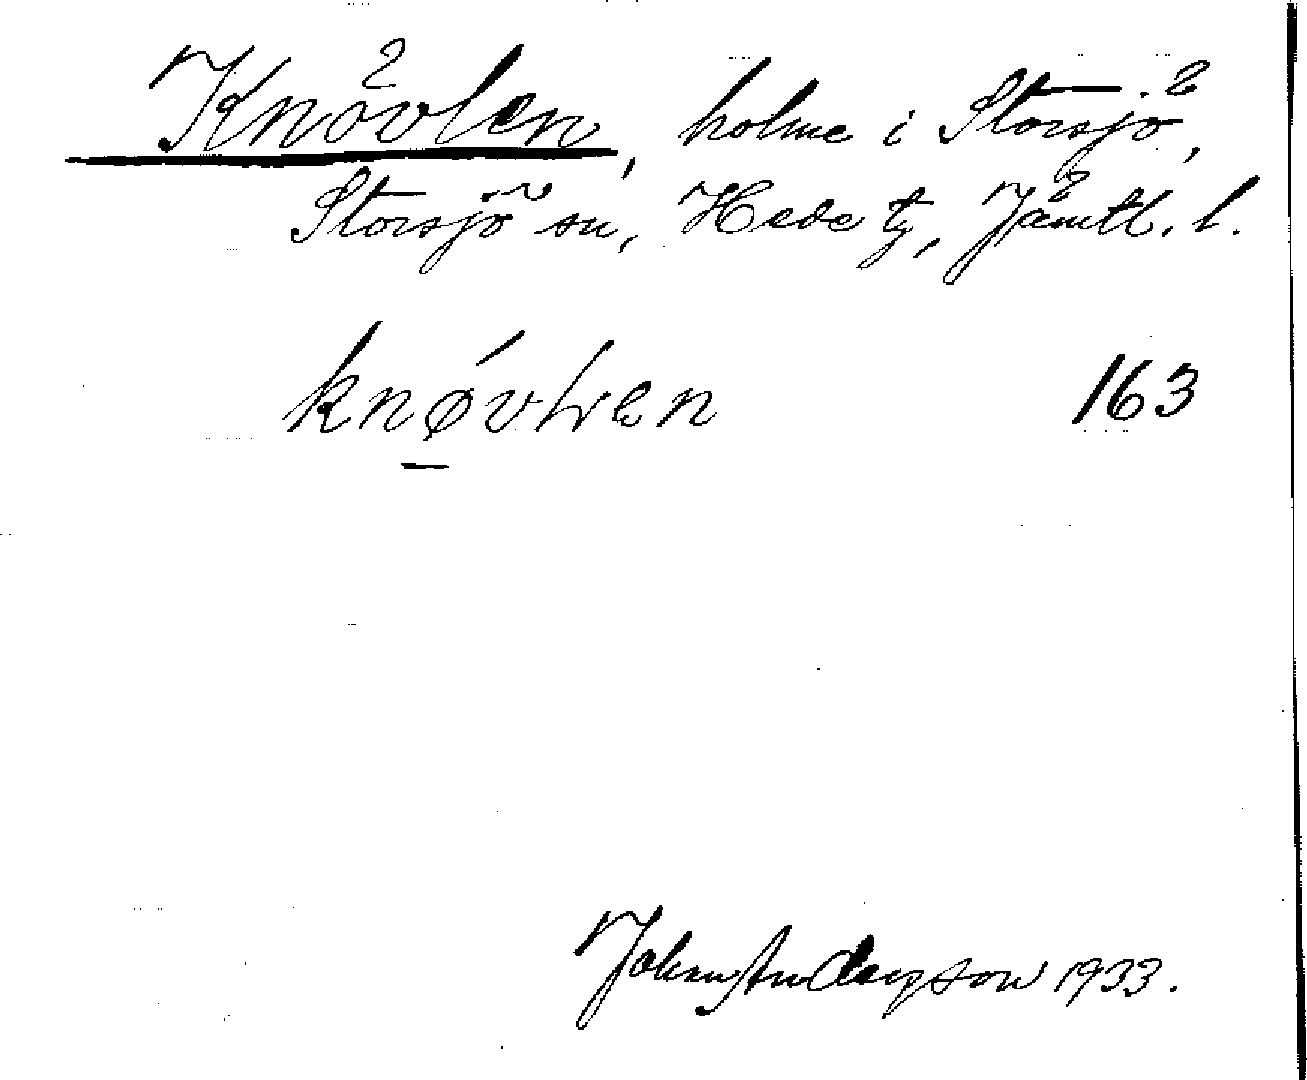 Knövlen, holme i Storsjö,
Storsjö sn, Hede tg, Jämtl. l.
knǿvlen 163
Johan Anderson 1933.